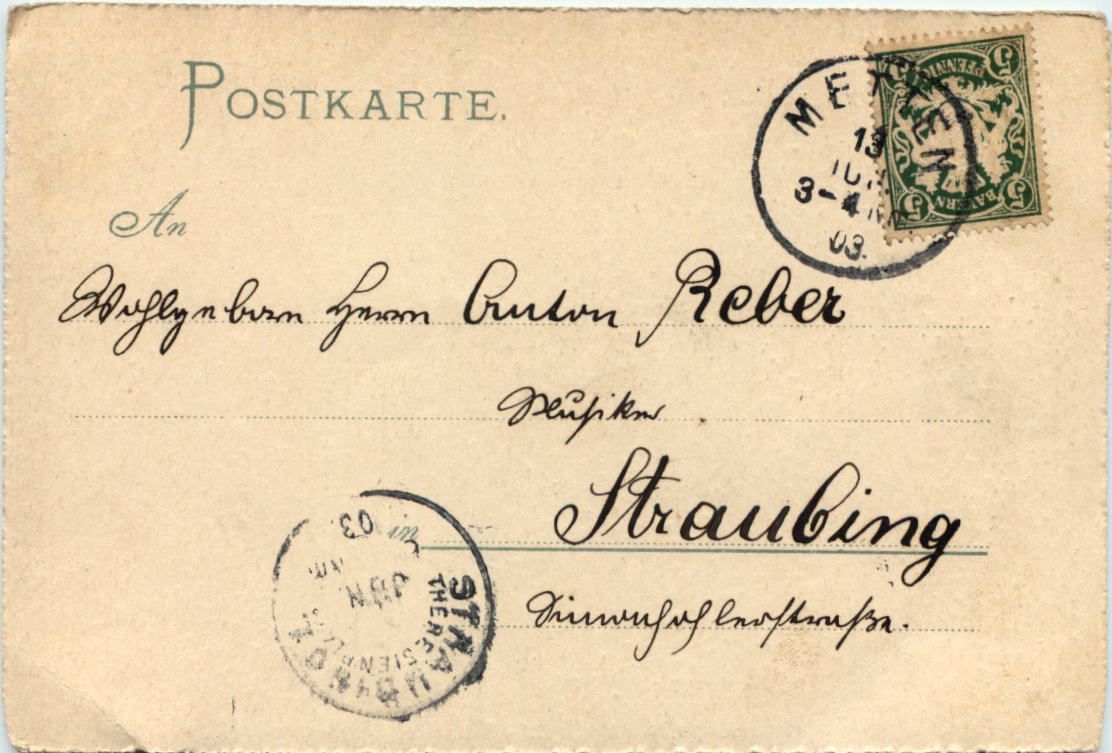 POSTKARTE.
METTEN
13
JUN.
3-4 NM.
03.
5 PFENNIG 5
5 BAYERN 5
An
Wohlgeborn Herrn Anton Reber
Musiker
in Straubing
Simonhöhlerstraße.
STRAUBING
THERESIEN
JUN
03